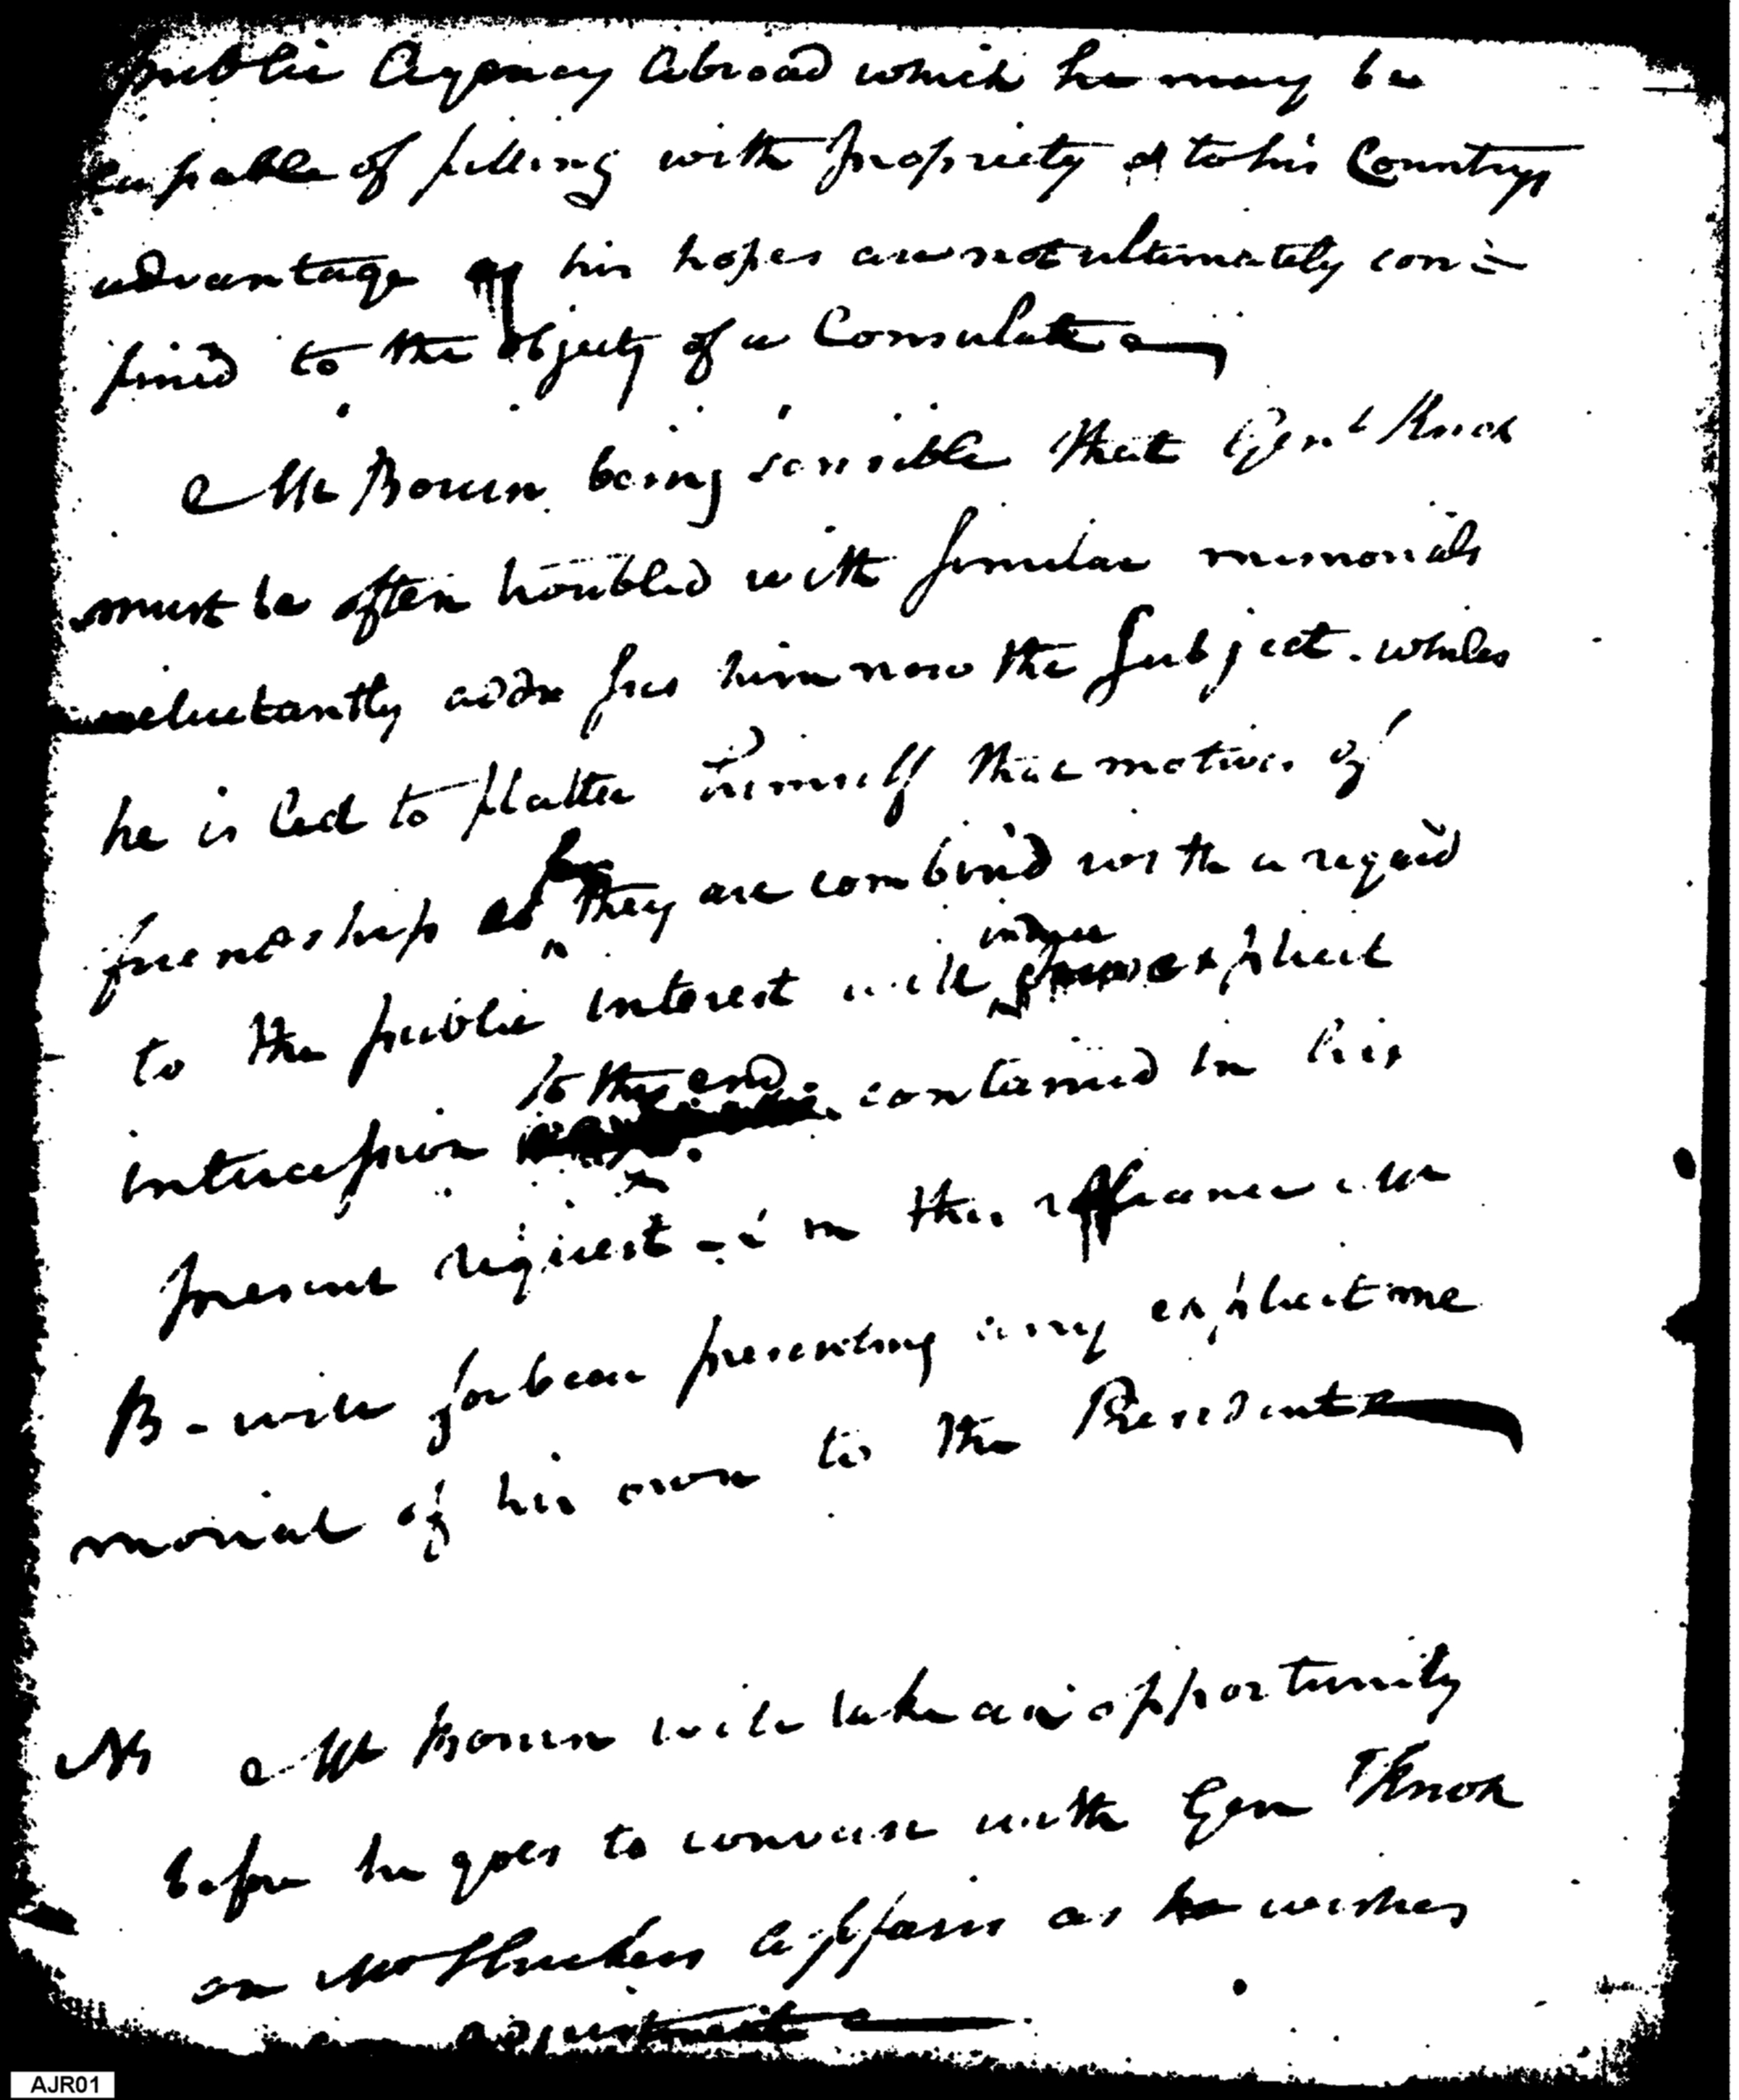 public Agency Abroad which he may be
capable of filling with propriety & to his Countrys
advantage as his hopes are not ultimately con=
fined to the objects of a Consulate
Mr Bowen being sensible that Genl Knox
must be often troubled with similar memorials
reluctantly addresses him now the Subject. whiles
he is led to flatter himself that motives of
friendship as far they are combin'd with a regard
to the public interest will induce explicit
intercession to the end contained in his
present request - in this affiance Mr
B - will forbear presenting any explicit me
morial of his own to the President
NB Mr Bowen will take an opportunity
before he goes to converse with Gen Knox
on Mr affairs as he wishes
an adjustment
AJR01